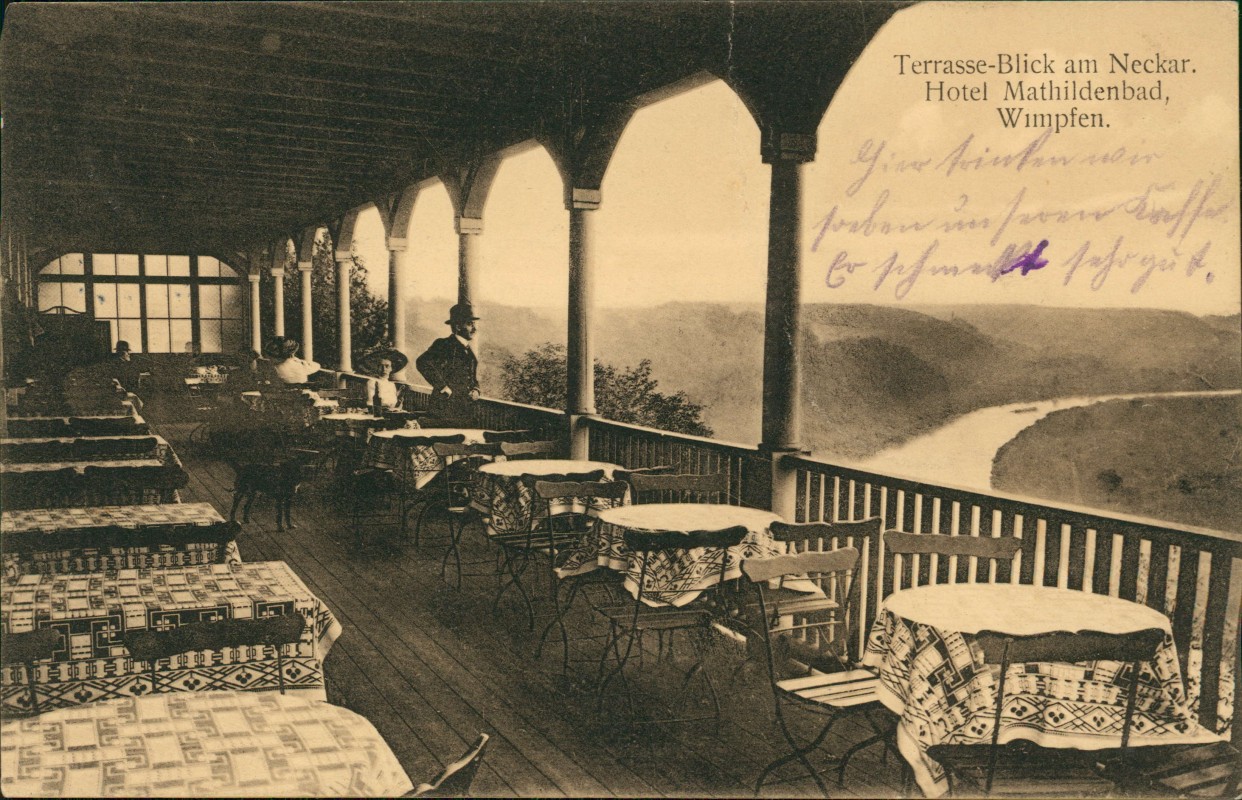 Terrasse-Blick am Neckar.
Hotel Mathildenbad,
Wimpfen.
Hier trinken wir
soeben unseren Kaffe
Er schmeckt sehr gut.